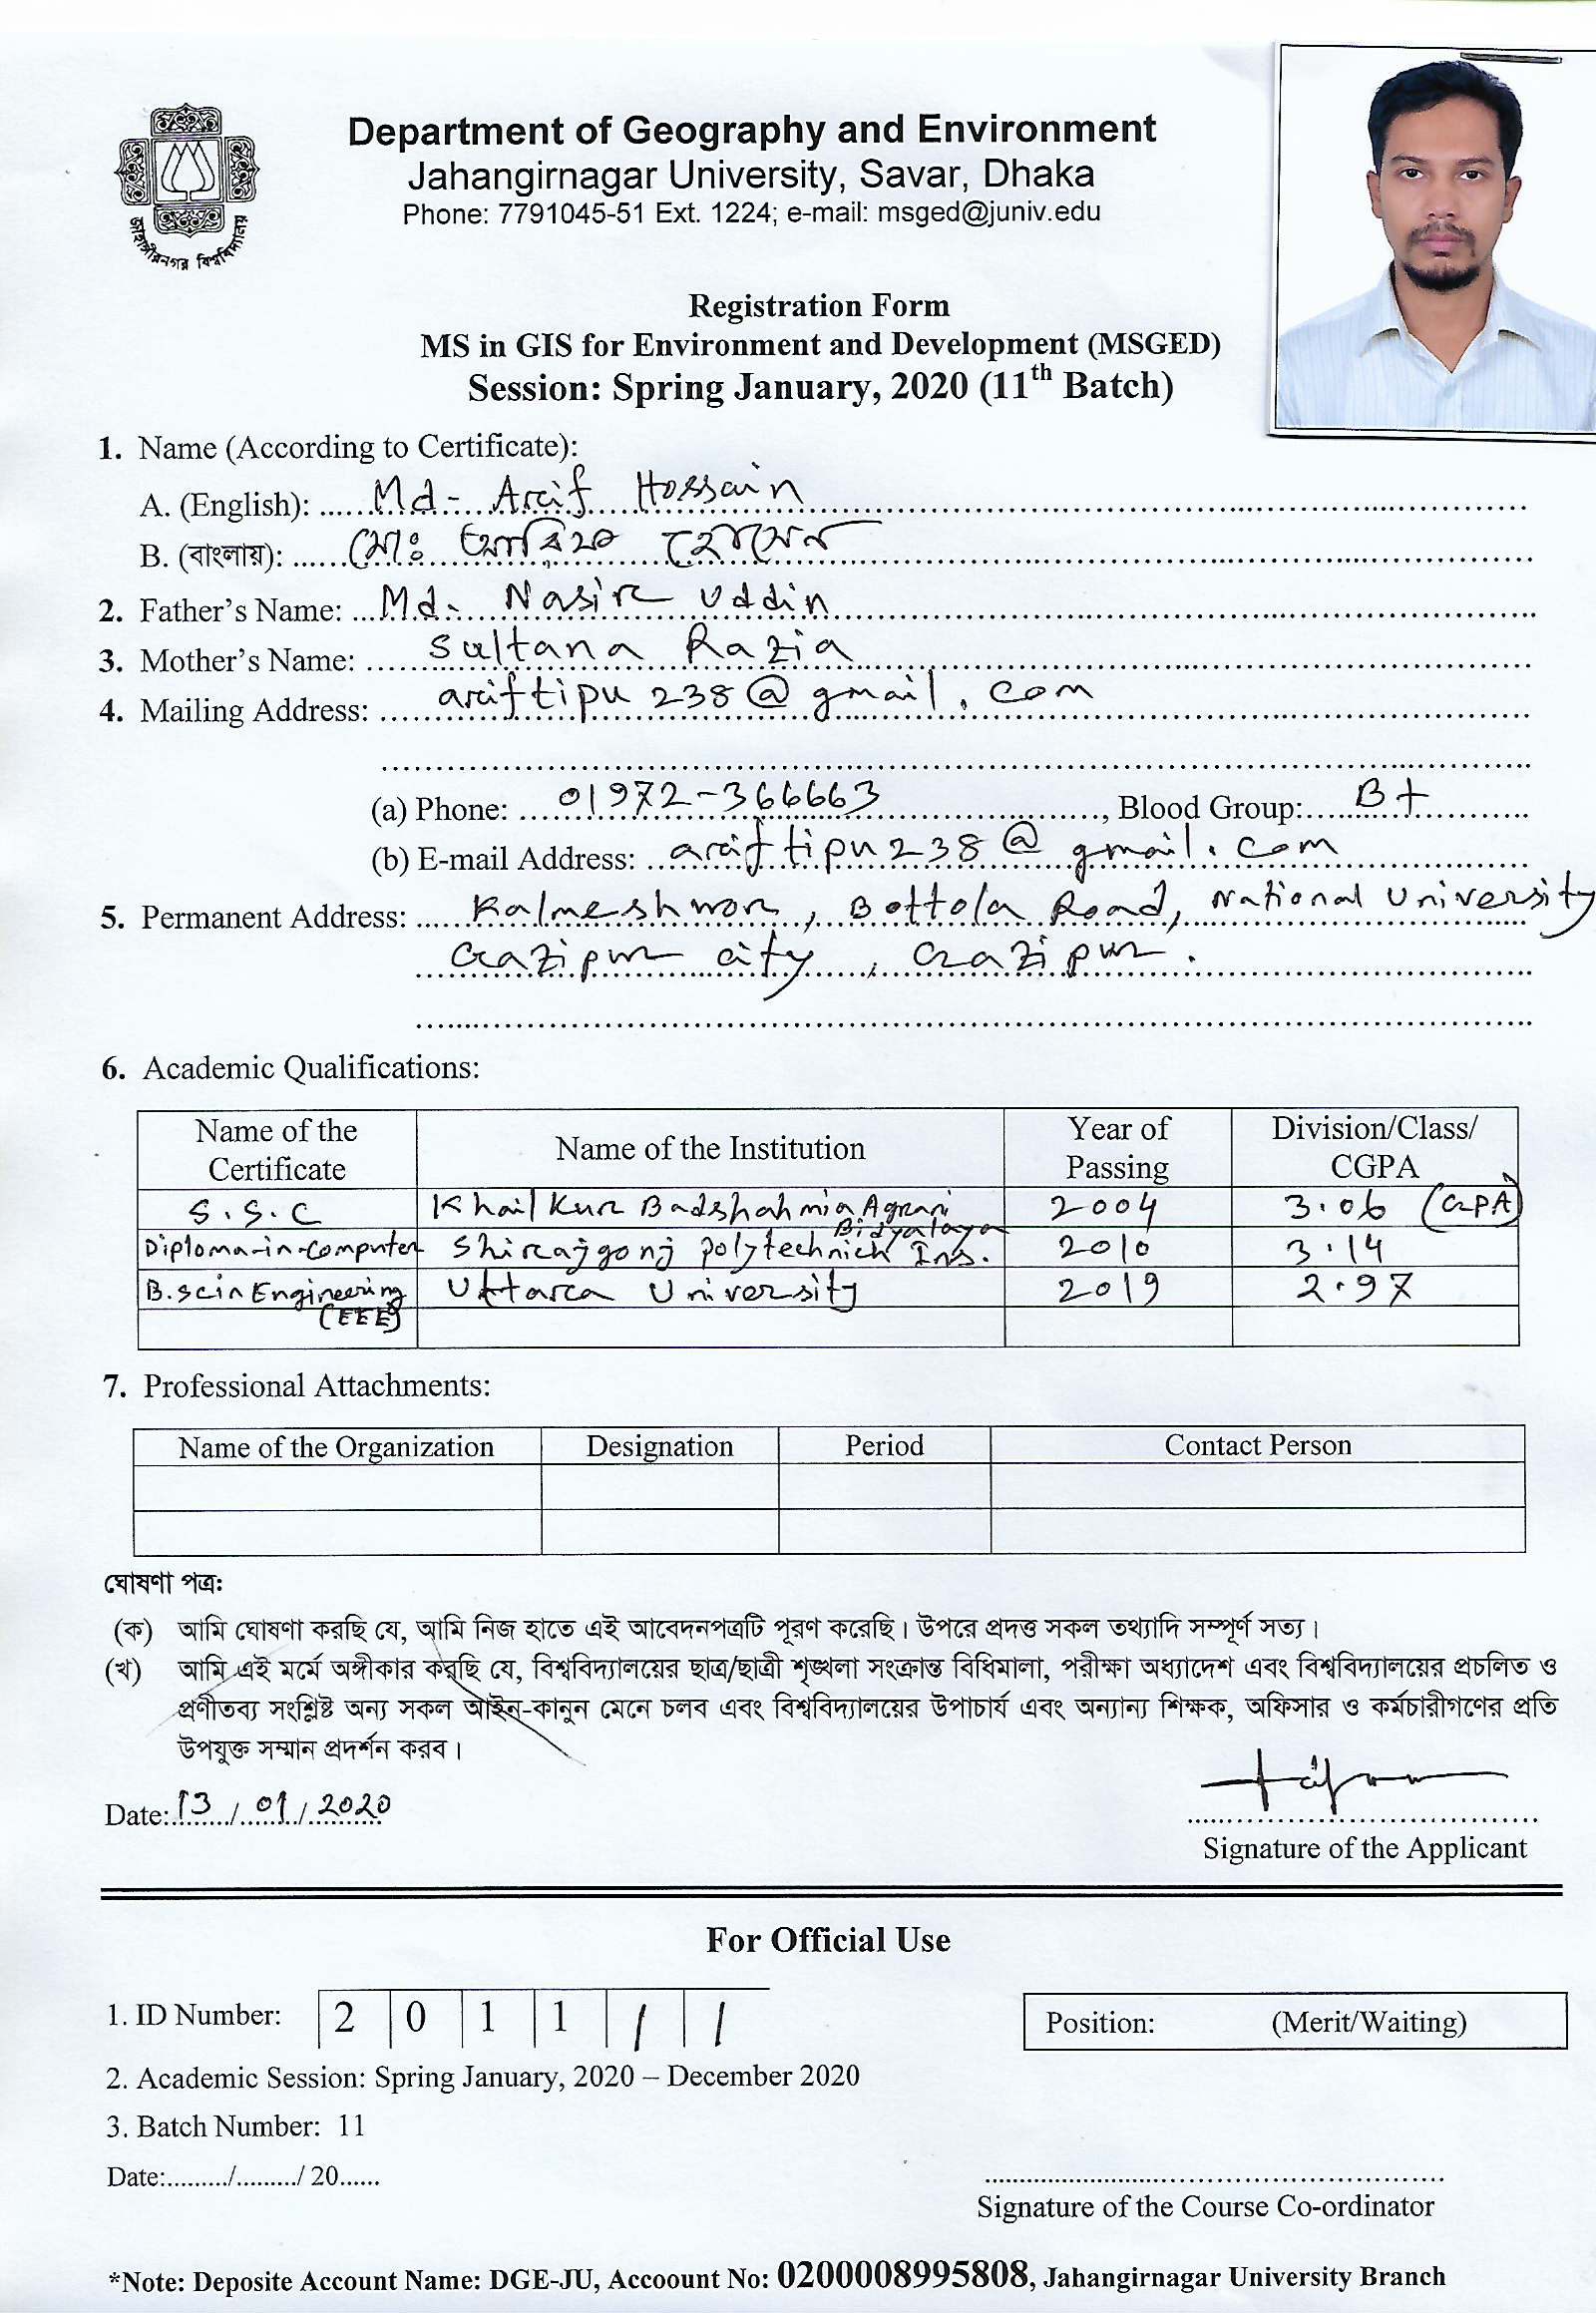 জাহাঙ্গীরনগর বিশ্ববিদ্যালয়
Department of Geography and Environment
Jahangirnagar University, Savar, Dhaka
Phone: 7791045-51 Ext. 1224; e-mail: msged@juniv.edu
Registration Form
MS in GIS for Environment and Development (MSGED)
Session: Spring January, 2020 (11th Batch)
1. Name (According to Certificate):
A. (English): Md. Arif Hossain
B. (বাংলায়): মোঃ আরিফ হোসেন
2. Father's Name: Md. Nasir Uddin
3. Mother's Name: Sultana Razia
4. Mailing Address: ariftipu238@gmail.com
(a) Phone: 01972-366663, Blood Group: B+
(b) E-mail Address: ariftipu238@gmail.com
5. Permanent Address: Kalmeshwor, Bottola Road, National University
Gazipur city, Gazipur.
6. Academic Qualifications:
Name of the Certificate Name of the Institution Year of Passing Division/Class/CGPA
S.S.C Khailkur Badshahmia Agrani Bidyalaya 2004 3.06 (GPA)
Diploma-in-Computer Shirajgonj Polytechnich Ins. 2010 3.14
B.Sc in Engineering (EEE) Uttara University 2019 2.97
7. Professional Attachments:
Name of the Organization Designation Period Contact Person
ঘোষণা পত্র:
(ক) আমি ঘোষণা করছি যে, আমি নিজ হাতে এই আবেদনপত্রটি পূরণ করেছি। উপরে প্রদত্ত সকল তথ্যাদি সম্পূর্ণ সত্য।
(খ) আমি এই মর্মে অঙ্গীকার করছি যে, বিশ্ববিদ্যালয়ের ছাত্র/ছাত্রী শৃঙ্খলা সংক্রান্ত বিধিমালা, পরীক্ষা অধ্যাদেশ এবং বিশ্ববিদ্যালয়ের প্রচলিত ও
প্রণীতব্য সংশ্লিষ্ট অন্য সকল আইন-কানুন মেনে চলব এবং বিশ্ববিদ্যালয়ের উপাচার্য এবং অন্যান্য শিক্ষক, অফিসার ও কর্মচারীগণের প্রতি
উপযুক্ত সম্মান প্রদর্শন করব।
Date: 13/01/2020
Signature of the Applicant
For Official Use
1. ID Number: 2 0 1 1 / /
Position: (Merit/Waiting)
2. Academic Session: Spring January, 2020 – December 2020
3. Batch Number: 11
Date:........./........./ 20......
Signature of the Course Co-ordinator
*Note: Deposite Account Name: DGE-JU, Accoount No: 0200008995808, Jahangirnagar University Branch